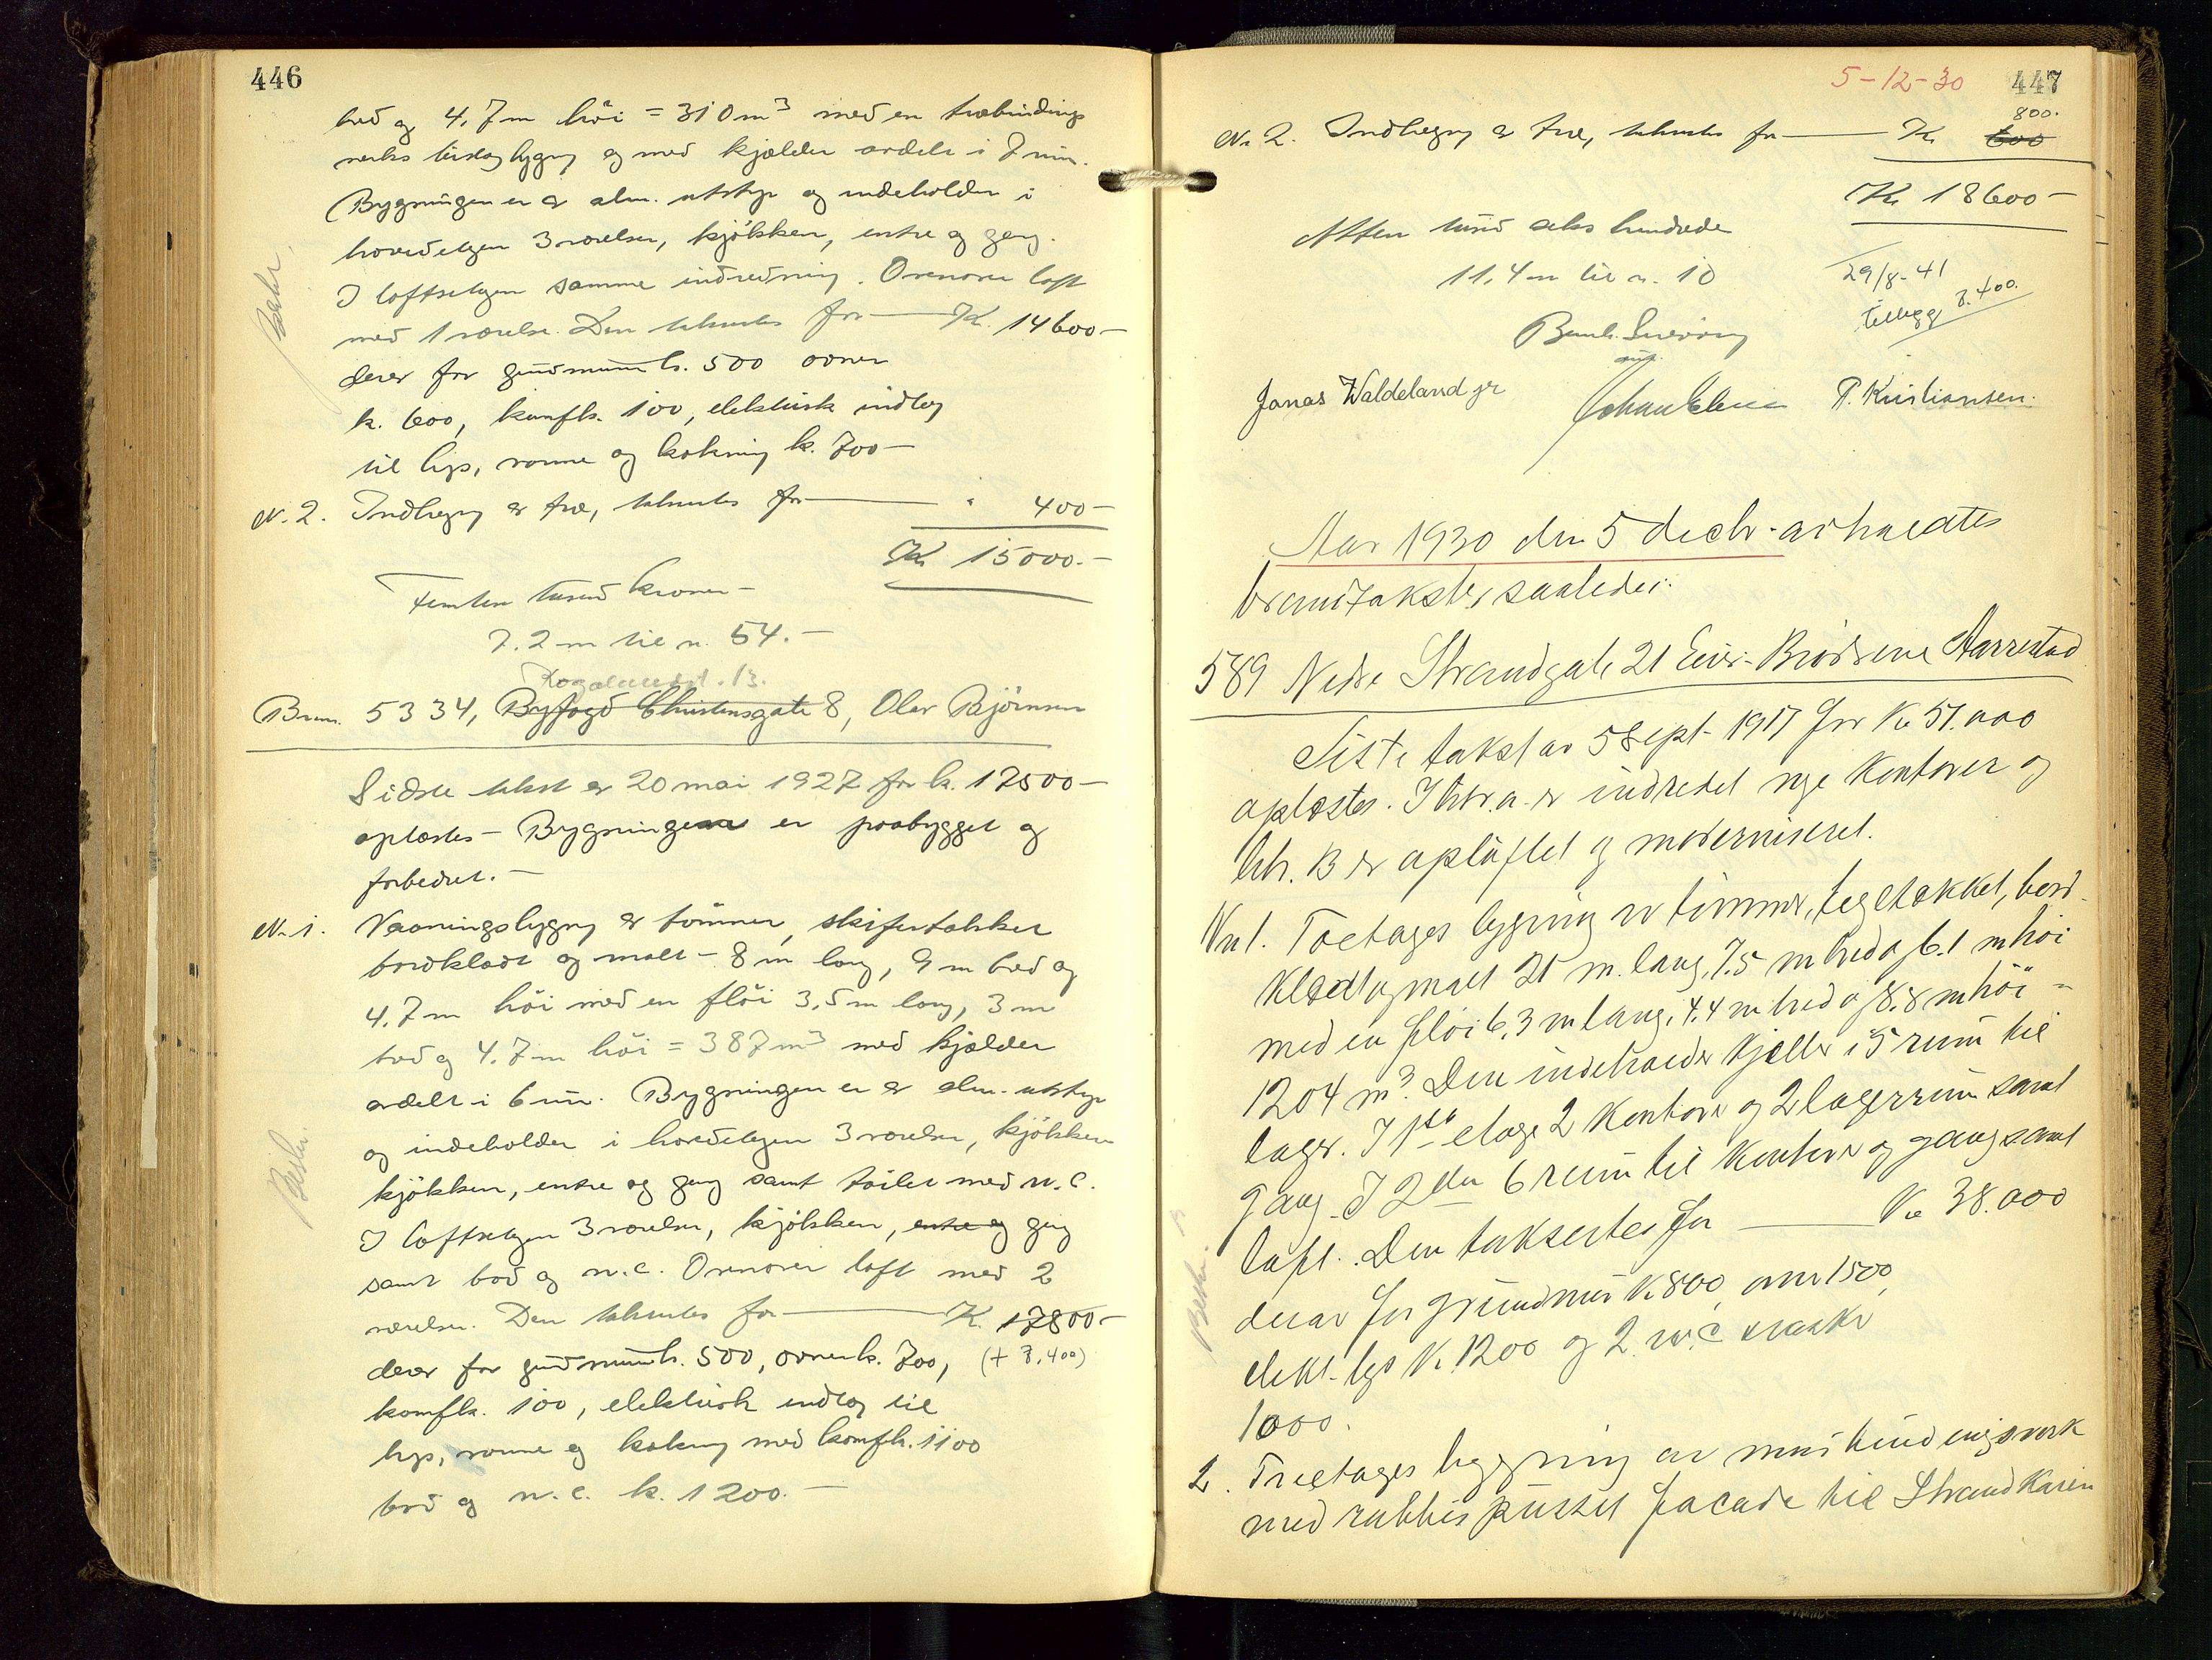 446
bred og 4.7 m höi = 310 m³ med en træbindings
verks tilbygg og med kjælder avdelt i 7 rum.
Bygningen er av alm. utstyr og indeholder i
hovedetgen 3 værelser, kjökken, entre og gang.
I loftsetgen samme indredning. Ovenover loft
med 1 værelse. Den takseres for — Kr. 14600 –
derav for grundmuur kr. 500 ovner
kr. 600, komf kr. 100, elektrisk indlæg
til lys, varme og kokning kr. 700 –
N. 2. Indhegn av træ, takseres for — " 400 –
Kr 15000. –
Femten tusend kroner –
7.2 m til n. 54. –
Rogalandsgt. 13.
Brnr. 5334, Byfogd Christensgate 8, Olav Björnsen
Sidste takst av 20 mai 1927 for kr. 17500 –
oplæstes – Bygningen er paabygget og
forbedret. –
N. 1. Vaaningsbygn av tömmer, skifertakket
bordklædt og malt – 8 m lang, 9 m bred og
4.7 m höi med en flöi 3,5 m lang, 3 m
bred og 4.7 m höi = 387 m³ med kjælder
avdelt i 6 rum. Bygningen er av alm. utstyr
og indeholder i hovedetgen 3 værelser, kjökken
kjökken, entre og gang samt toilet med w.c.
I loftsetgen 3 værelser, kjökken, entre og gang
samt bad og w.c. Ovenover loft med 2
værelser. Den takseres for — Kr. 17800 –
derav for grundmuur kr. 500, ovner kr. 700, (+ 7.400)
komf kr. 100, elektrisk indlæg til
lys, varme og kokning med komf kr. 1100
bad og w.c. kr. 1200. –
5-12-30 447
800.
N. 2. Indhegn av træ, takseres for — Kr 600
Kr 18600 –
Atten tusend seks hundrede
11.4 m til n. 10
29/8-41
tillegg 7.400.
Jonas Waldeland jr
P. Kristiansen.
Aar 1930 den 5 decbr. avholdtes
brandtakster saaledes:
589 Nedre Strandgate 21 Eier: Brödrene Aarrestad
Siste takst av 5 Sept. 1917 for Kr 51.000
oplæstes. I litr. a. er indredet nye Kontorer og
litr. B er opløftet og moderniseret.
N 1. Toetages bygning av tømmer, tegltakket, bord-
klædt og malt 21 m. lang, 7.5 m bred og 6.1 m höi
med en fløi 6.3 m lang, 4.4 m bred og 8.8 m höi =
1204 m³. Den indeholder kjeller i 5 rum til
lager. I 1ste etage 2 Kontorer og 2 lagerrum samt
gang. I 2den 6 rum til Kontorer og gang samt
loft. Den taksertes for — Kr 38.000
derav for grundmur Kr 800, ovner 1500,
elekt. lys Kr 1200 og 2 w.c vaske
1000.
2. Treetages bygning av mur bindingsverk
med rabbitspusset facade til Strandkaien